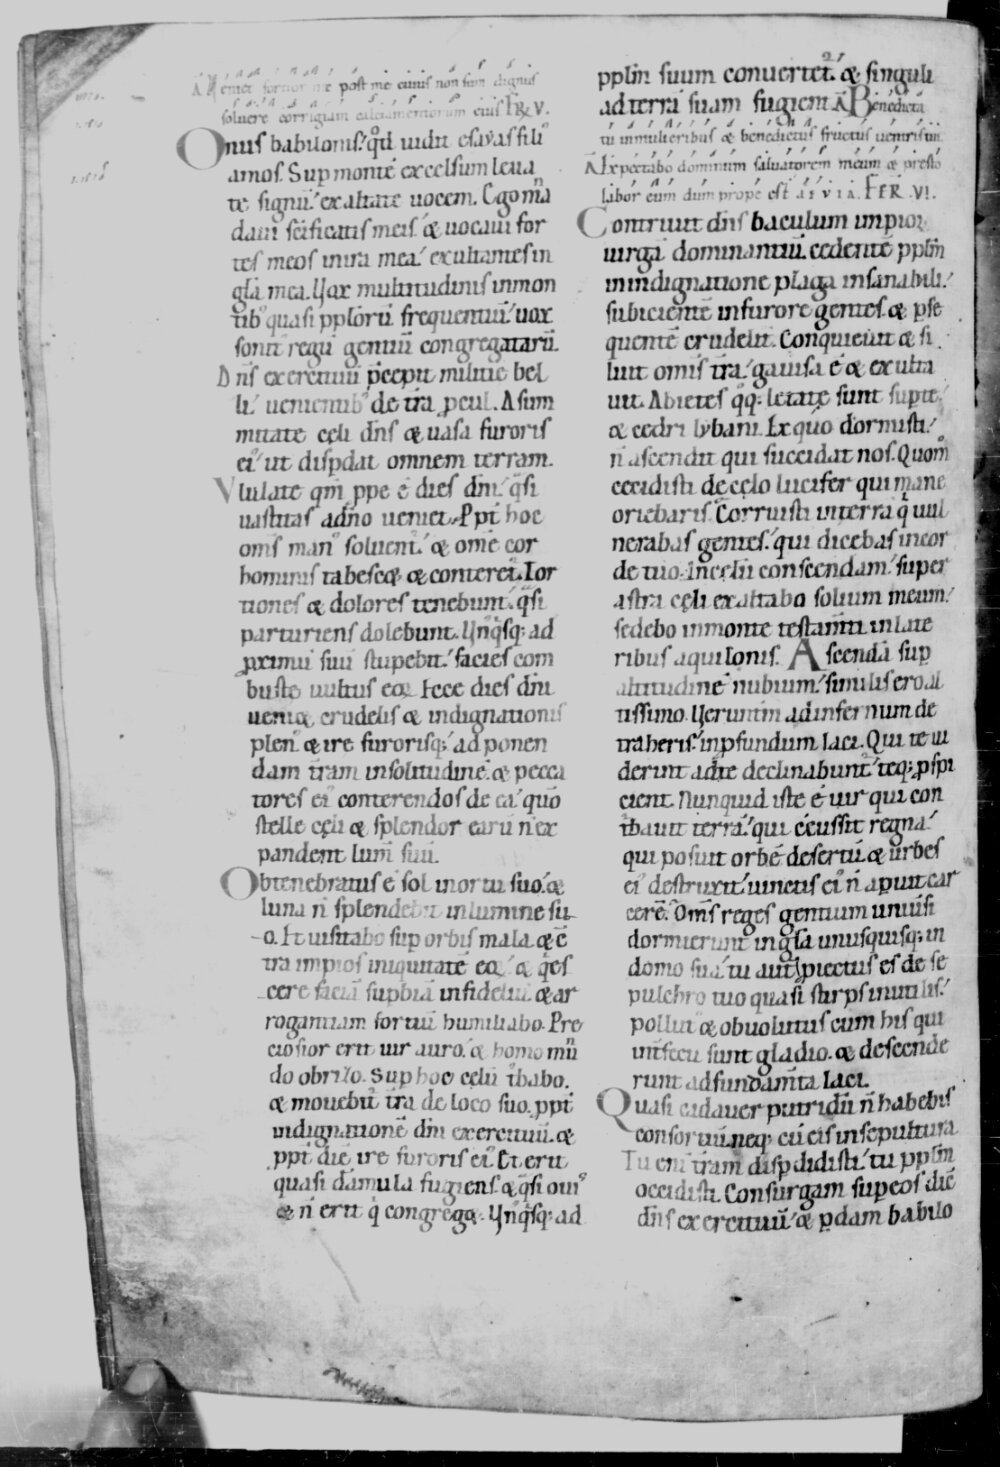 A Veniet fortior me post me cuius non sum dignus
soluere corrigiam calciamentorum eius FR. V.
Onus babilonis. qđ uidit esayas filiꝰ
amos. Sup montē excelsum leua
te signū. exaltate uocem. Ego mā
daui sc̄ificatis meis. & uocaui for
tes meos in ira mea. exultantes in
gl̄a mea. Uox multitudinis in mon
tibꝰ quasi pplorū frequentiū. uox
sonit̄ regū gentiū congregatarū.
Dn̄s exercituū p̄cepit militie bel
li. uenientibꝰ de tr̄a pcul. A sum
mitate cęli dn̄s & uasa furoris
eiꝰ ut dispdat omnem terram.
Vlulate qm̄ ppe ē dies dn̄i. q̄si
uastitas a dn̄o ueniet. Ppt̄ hoc
om̄s manꝰ soluent̄. & om̄e cor
hominis tabesc& & conteret̄. Tor
tiones & dolores tenebunt. q̄si
parturiens dolebunt. Unqsq; ad
pximū suū stupebit. facies com
buste uultus eoꝝ. Ecce dies dn̄i
ueni& crudelis & indignationis
plenꝰ & ire furorisq; ad ponen
dam tr̄am in solitudinē. & pecca
tores eiꝰ conterendos de ea. quō
stelle cęli & splendor earū n̄ ex
pandent lum̄ suū.
Obtenebratus ē sol in ortu suo. &
luna n̄ splendebit in lumine su
o. Et uisitabo sup orbis mala & c̄
tra impios iniquitatē eoꝝ. & q̄es
cere faciā supbiā infideliū. & ar
rogantiam fortiū humiliabo. Pre
ciosior erit uir auro. & homo mū
do obrizo. Sup hoc cęlū t̄babo.
& mouebit̄ tr̄a de loco suo. ppt̄
indignationē dn̄i exercituū. &
ppt̄ diē ire furoris eiꝰ. Et erit
quasi dāmula fugiens. & q̄si ouiꝰ
& n̄ erit q̇ congreg&. Unqsq; ad
pplm̄ suum conuertet̄. & singuli
ad terrā suam fugient. A Benedicta
tu in mulieribus & benedictus fructus uentris tui.
A Expectabo dominum saluatorem meum & presto
labor eum dum prope est aeuia. FER. VI.
Contriuit dn̄s baculum impioꝝ
uirgā dominantiū. cedentē pplm̄
in indignatione plaga insanabili.
subicientē in furore gentes. & pse
quentē crudelit̄. Conquieuit & si
luit omis tr̄a. gauisa ē & exulta
uit. Abietes qq; letate sunt sup te.
& cedri lybani. Ex quo dormisti.
n̄ ascendit qui succidat nos. Quom̊
cecidisti de cęlo lucifer qui mane
oriebaris. Corruisti in terrā q̇ uul
nerabas gentes. qui dicebas in cor
de tuo. In cęlū conscendam. super
astra cęli exaltabo solium meum.
sedebo in monte testam̄ti in late
ribus aquilonis. Ascendā sup
altitudinē nubium. similis ero al
tissimo. Uerunt̄m ad infernum de
traheris. in pfundum laci. Qui te ui
derint ad te declinabunt. teq; pspi
cient. Nunquid iste ē uir qui con
t̄bauit terrā. qui c̄cussit regna.
qui posuit orbē desertū. & urbes
eiꝰ destruxit. uinctis eiꝰ n̄ apuit car
cerē. Om̄s reges gentium uniūsi
dormierunt in gl̄a unusquisq; in
domo sua. tu aut̄ piectus es de se
pulchro tuo quasi stirps inutilis.
pollutꝰ & obuolutus cum his qui
int̄fecti sunt gladio. & descende
runt ad fundam̄ta laci.
Quasi cadauer putridū n̄ habebis
consortiū. neq; cū eis in sepultura
Tu eni tr̄am dispdidisti. tu pplm̄
occidisti. Consurgam sup eos dic̄
dn̄s exercituū. & pdam babilo